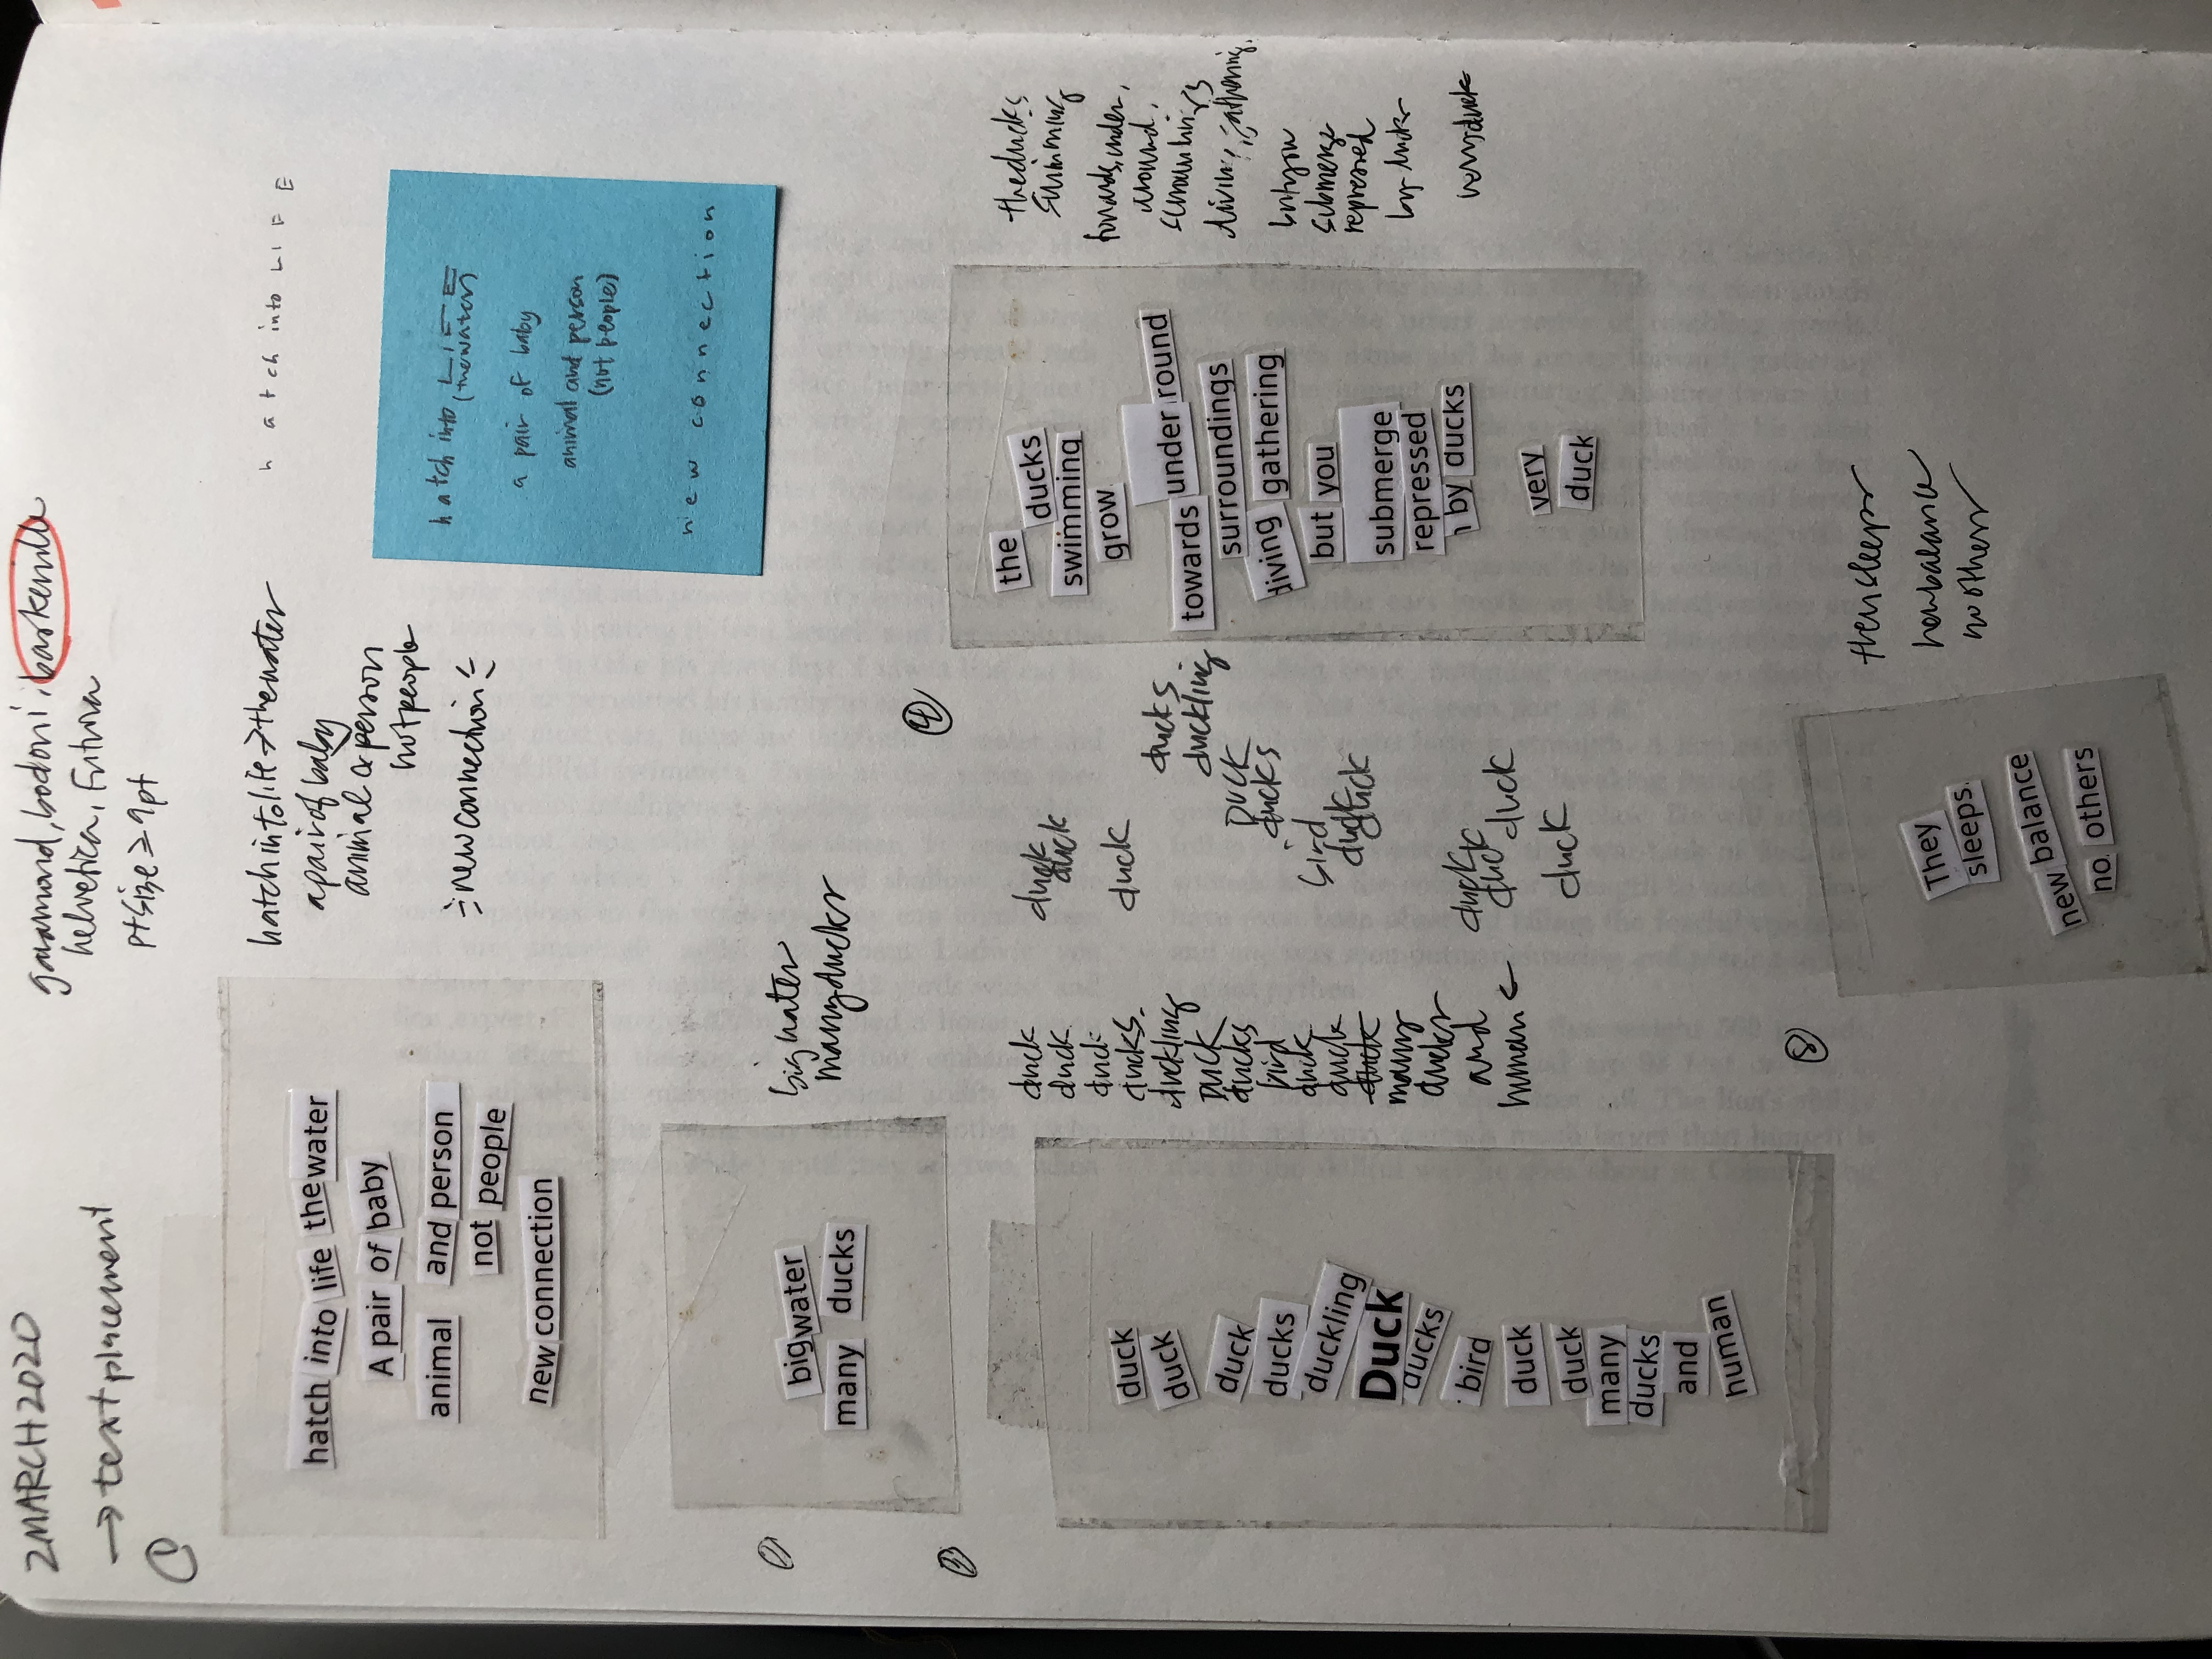 2 MARCH 2020
→ text placement
garamond, bodoni, baskerville
helvetica, Futura
pt size ≥ 9pt
1
hatch into life the water
A pair of baby
animal and person
not people
new connection
hatch into life → the water
a pair of baby
animal & person
not people
new connection
h a t c h into L I F E
h a t c h into L I F E
(the water)
a pair of baby
animal and person
(not people)
n e w c o n n e c t i o n
big water
many ducks
big water
many ducks
3
duck
duck
duck
ducks
duckling
Duck
ducks
bird
duck
duck
many
ducks
and
human
duck
duck
duck
ducks
duckling
DUCK
ducks
bird
duck
duck
duck
many
ducks
and
human ←
duck
duck
duck
ducks
duckling
DUCK
ducks
bird
duck
duck
duck
duck
duck
duck
4
the
ducks
swimming
grow
towards under round
surroundings
diving gathering
but you
submerge
repressed
by ducks
very
duck
the ducks
swimming
towards, under,
around,
surroundings
diving, gathering,
but you
submerge
repressed
by ducks
very duck
8
They
sleeps.
new balance
no. others
they sleeps
new balance
no others